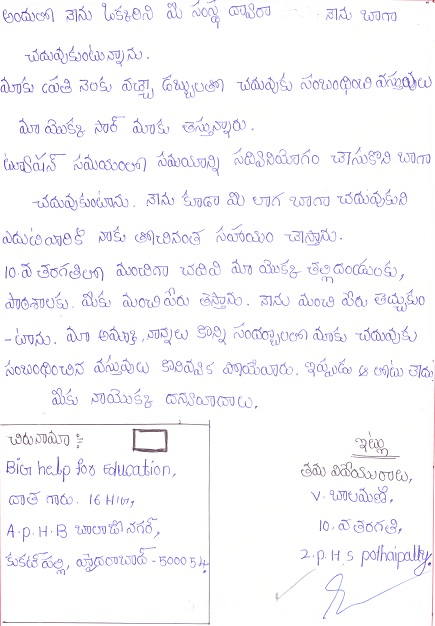 అందులో నేను ఒక్కరిని మీ సంస్థ ద్వారా నేను బాగా
చదువుకుంటున్నాను.
మాకు ప్రతి నెలకు వచ్చే డబ్బులతో చదువుకు సంబంధించి వస్తువులు
మా యొక్క సార్ మాకు తెస్తున్నారు.
ట్యూషన్ సమయంలో సమయాన్ని సద్వినియోగం చేసుకొని బాగా
చదువుకుంటాను. నేను కూడా మీ లాగ బాగా చదువుకుని
ఎదుటివారికి నాకు తోచినంత సహాయం చేస్తాను.
10.వ తరగతిలో మంచిగా చదివి మా యొక్క తల్లిదండ్రులకు,
పాఠశాలకు. మీకు మంచి పేరు తెస్తాను. నేను మంచి పేరు తెచ్చుకుం
-టాను. మా అమ్మా, నాన్నలు కొన్ని సందర్భాలలో మాకు చదువుకు
సంబంధించిన వస్తువులు కొనివ్వక పోయేవారు. ఇప్పుడు ఆ లోటు లేదు
మీకు నాయొక్క ధన్యవాదాలు.
చిరునామా :-
BiG help for Education,
దాత గారు. 16 HIG,
A.P.H.B బాలాజీ నగర్,
కుకట్ పల్లి, హైదరాబాద్ - 500054.
ఇట్లు
తమ విధేయురాలు,
V. బాలమణి,
10. వ తరగతి,
Z.P.H.S pothaipally.